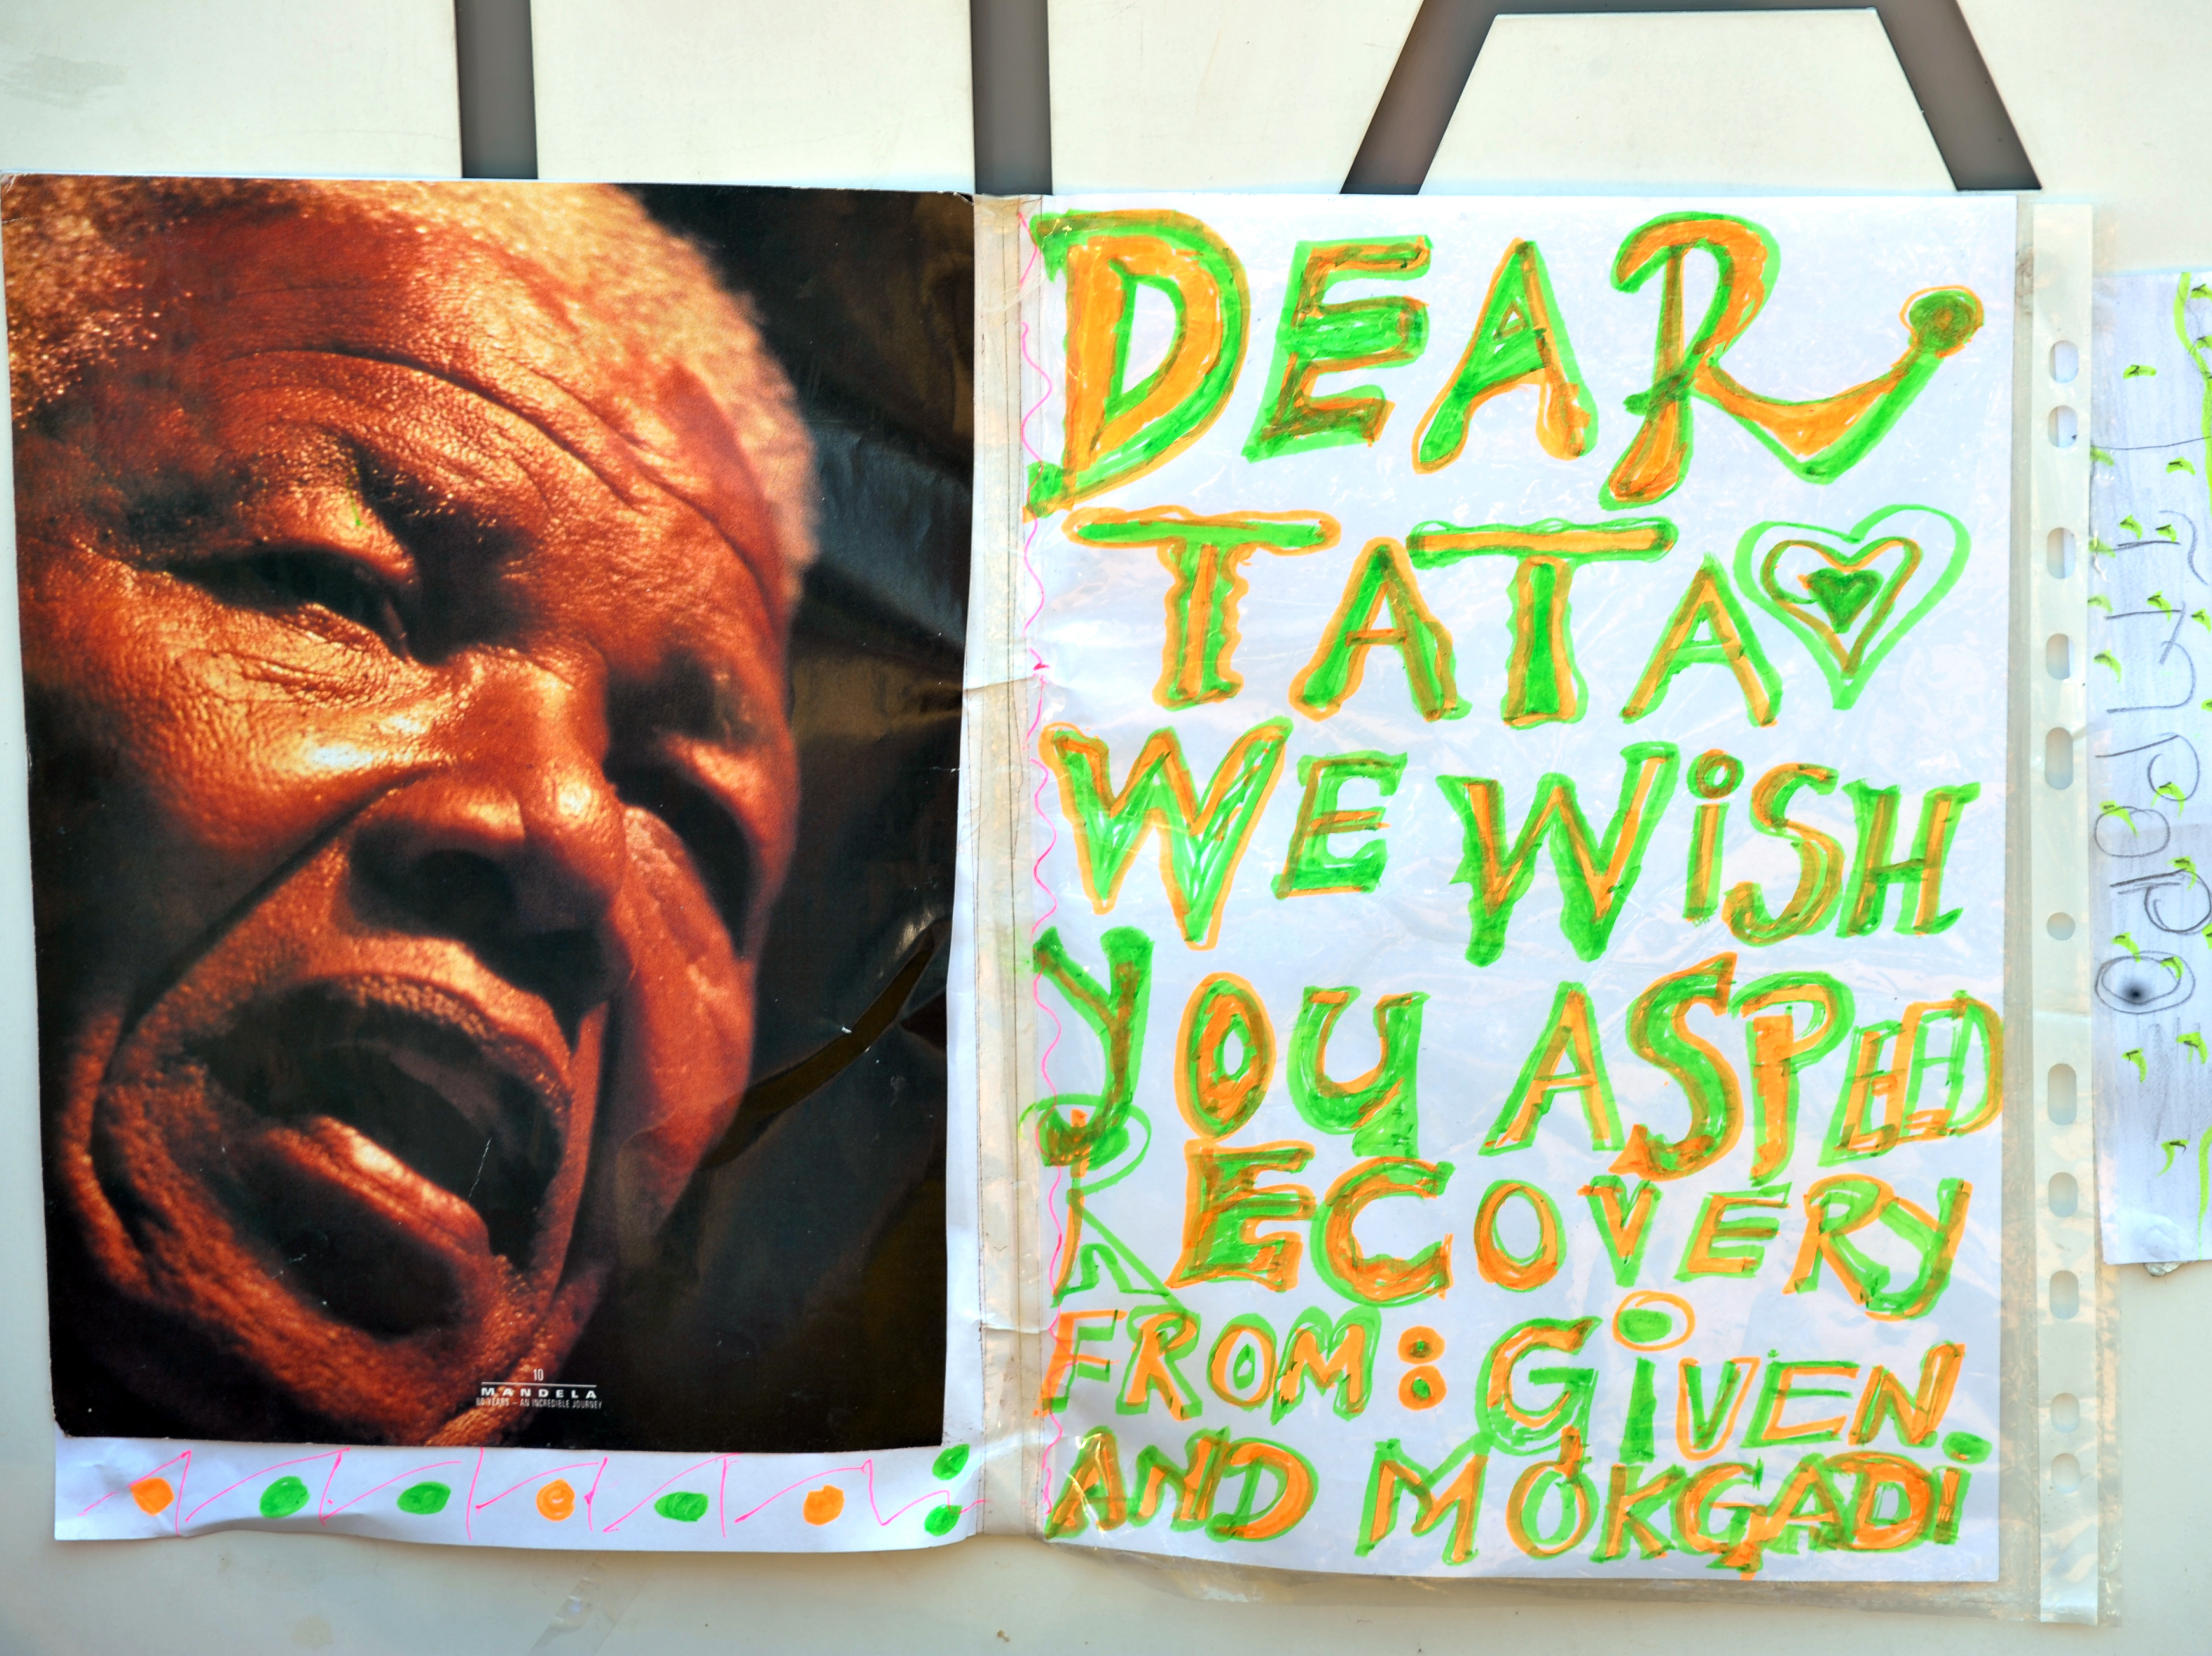 10
MANDELA
80 YEARS – AN INCREDIBLE JOURNEY
DEAR
TATA
WE WiSH
YOU A SPEED
RECOVERY
FROM: GiVEN
AND MOKGADi